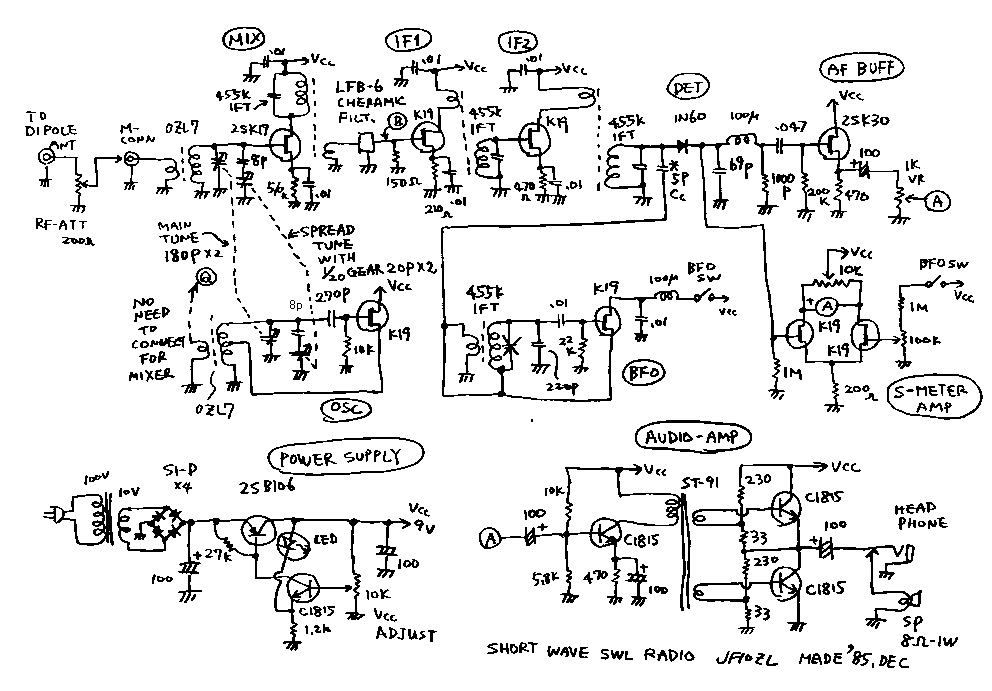 MIX
IF1
IF2
DET
AF BUFF
.01
Vcc
.01
Vcc
.01
Vcc
Vcc
455K
IFT
LFB-6
CHERAMIC
FILT.
B
K19
455K
IFT
K19
455K
IFT
1N60
100μ
.047
2SK30
TO
DIPOLE
ANT
M-
CONN
OZL7
2SK17
8p
.01
150Ω
.01
470
Ω
.01
*
5p
Cc
69p
1000
P
200
K
470
100
1K
VR
A
RF-ATT
200Ω
MAIN
TUNE
180P×2
SPREAD
TUNE
WITH
1/20 GEAR 20P×2
NO
NEED
TO
CONNECT
FOR
MIXER
8p
270p
Vcc
K19
10K
OZL7
OSC
455K
IFT
.01
K19
100μ
BFO
SW
Vcc
.01
22
K
220p
BFO
Vcc
10K
+
A
K19
K19
1M
200
Ω
BFO SW
Vcc
1M
100K
S-METER
AMP
POWER SUPPLY
100V
10V
SI-D
×4
2SB106
Vcc
9V
LED
27K
+
100
100
C1815
1.2K
10K
Vcc
ADJUST
AUDIO-AMP
Vcc
10K
ST-91
230
Vcc
C1815
A
100
+
C1815
5.8K
470
100
33
230
33
C1815
100
+
HEAD
PHONE
SP
8Ω-1W
SHORT WAVE SWL RADIO JF1OZL MADE '85, DEC